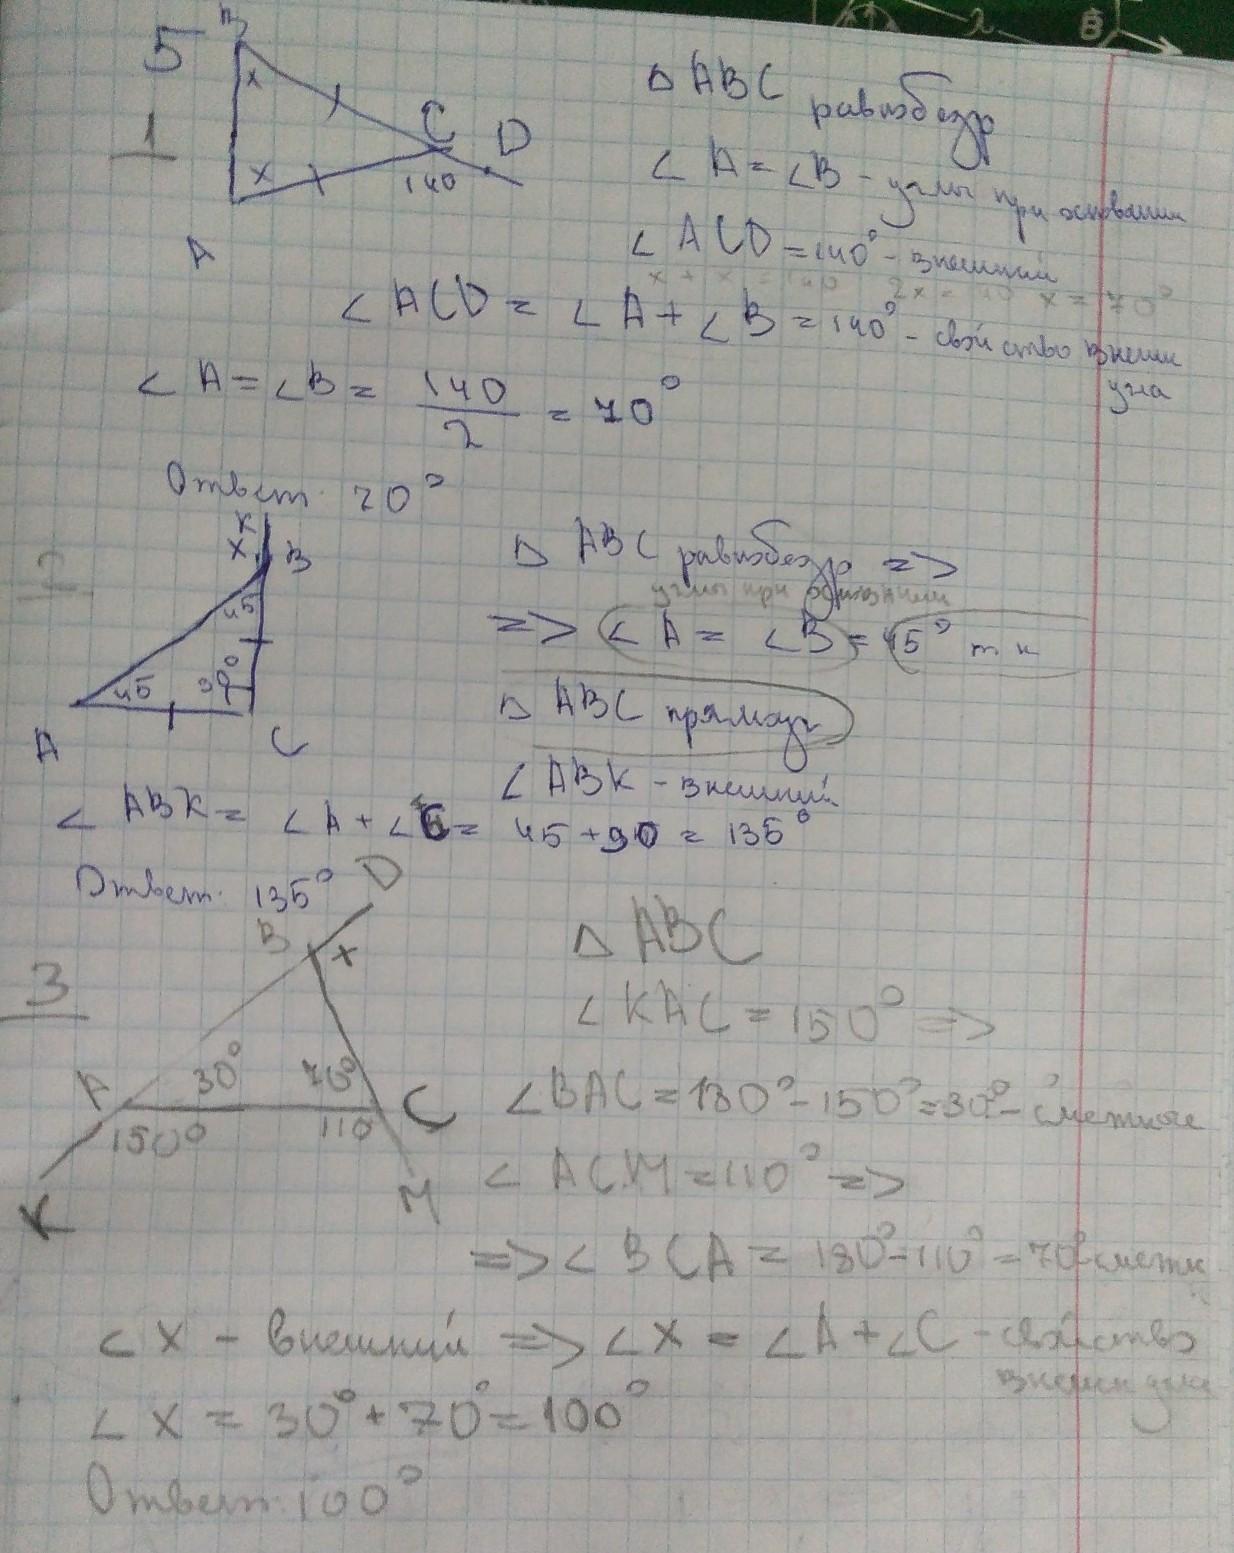 5
1
B
x
x
C
D
140
A
Δ ABC равнобедр
∠ A = ∠B - углы при основании
∠ ACD = 140° - внешний
x + x = 140 2x = 140 x = 70°
∠ ACD = ∠ A + ∠ B = 140° - свойство внешн
угла
∠ A = ∠B = 140/2 = 70°
Ответ. 70°
2
K
x
B
45
45
90°
A
C
Δ ABC равнобедр =>
углы при основании
=> ∠ A = ∠B = 45° т к
Δ ABC прямоуг
∠ ABK - внешний
∠ ABK = ∠ A + ∠ C = 45 + 90 = 135°
Ответ. 135°
3
D
B
x
A
30°
70°
C
150°
110
K
M
Δ ABC
∠ KAC = 150° =>
∠BAC = 180° - 150° = 30° - смежные
∠ ACM = 110° =>
=> ∠ BCA = 180° - 110° = 70° смежн
∠ X - внешний => ∠ X = ∠A + ∠C - свойство
внешн угла
∠ X = 30° + 70° = 100°
Ответ. 100°